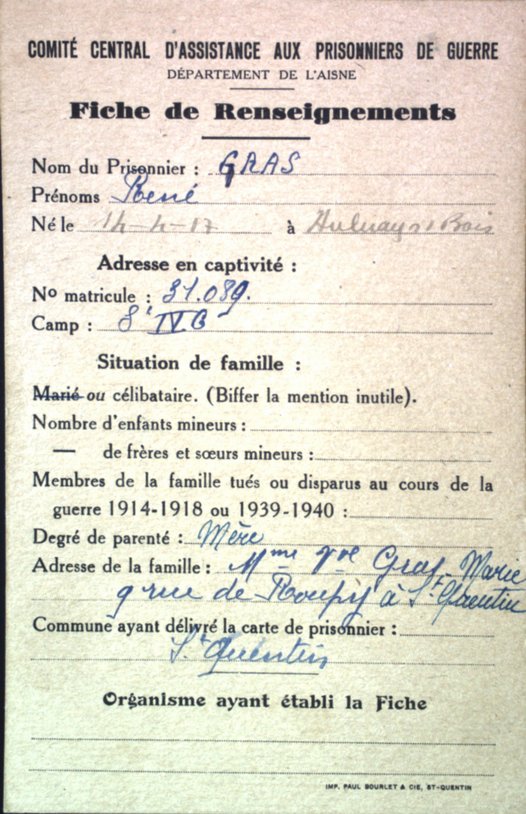 COMITÉ CENTRAL D'ASSISTANCE AUX PRISONNIERS DE GUERRE
DÉPARTEMENT DE L'AISNE
Fiche de Renseignements
Nom du Prisonnier : GRAS
Prénoms René
Né le 14-4-17 à Aulnay s/ Bois
Adresse en captivité :
No matricule : 31.089.
Camp : IV
Situation de famille :
Marié ou célibataire. (Biffer la mention inutile).
Nombre d'enfants mineurs :
— de frères et sœurs mineurs :
Membres de la famille tués ou disparus au cours de la
guerre 1914-1918 ou 1939-1940 :
Degré de parenté : Mère
Adresse de la famille : Mme Vve Gras Marie
9 rue de Roupy à St Quentin
Commune ayant délivré la carte de prisonnier :
St Quentin
Organisme ayant établi la Fiche
IMP. PAUL BOURLET & CIE, ST-QUENTIN